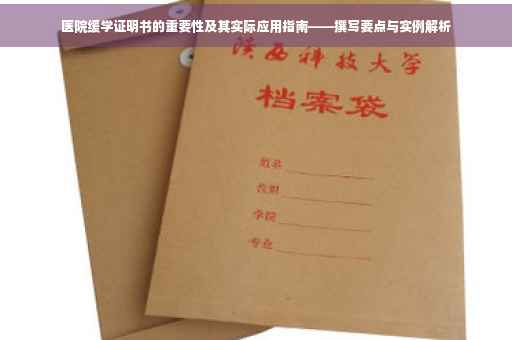 医院缓学证明书的重要性及其实际应用指南——撰写要点与实例解析
陕西科技大学
档案袋
姓名
教职
学院
专业